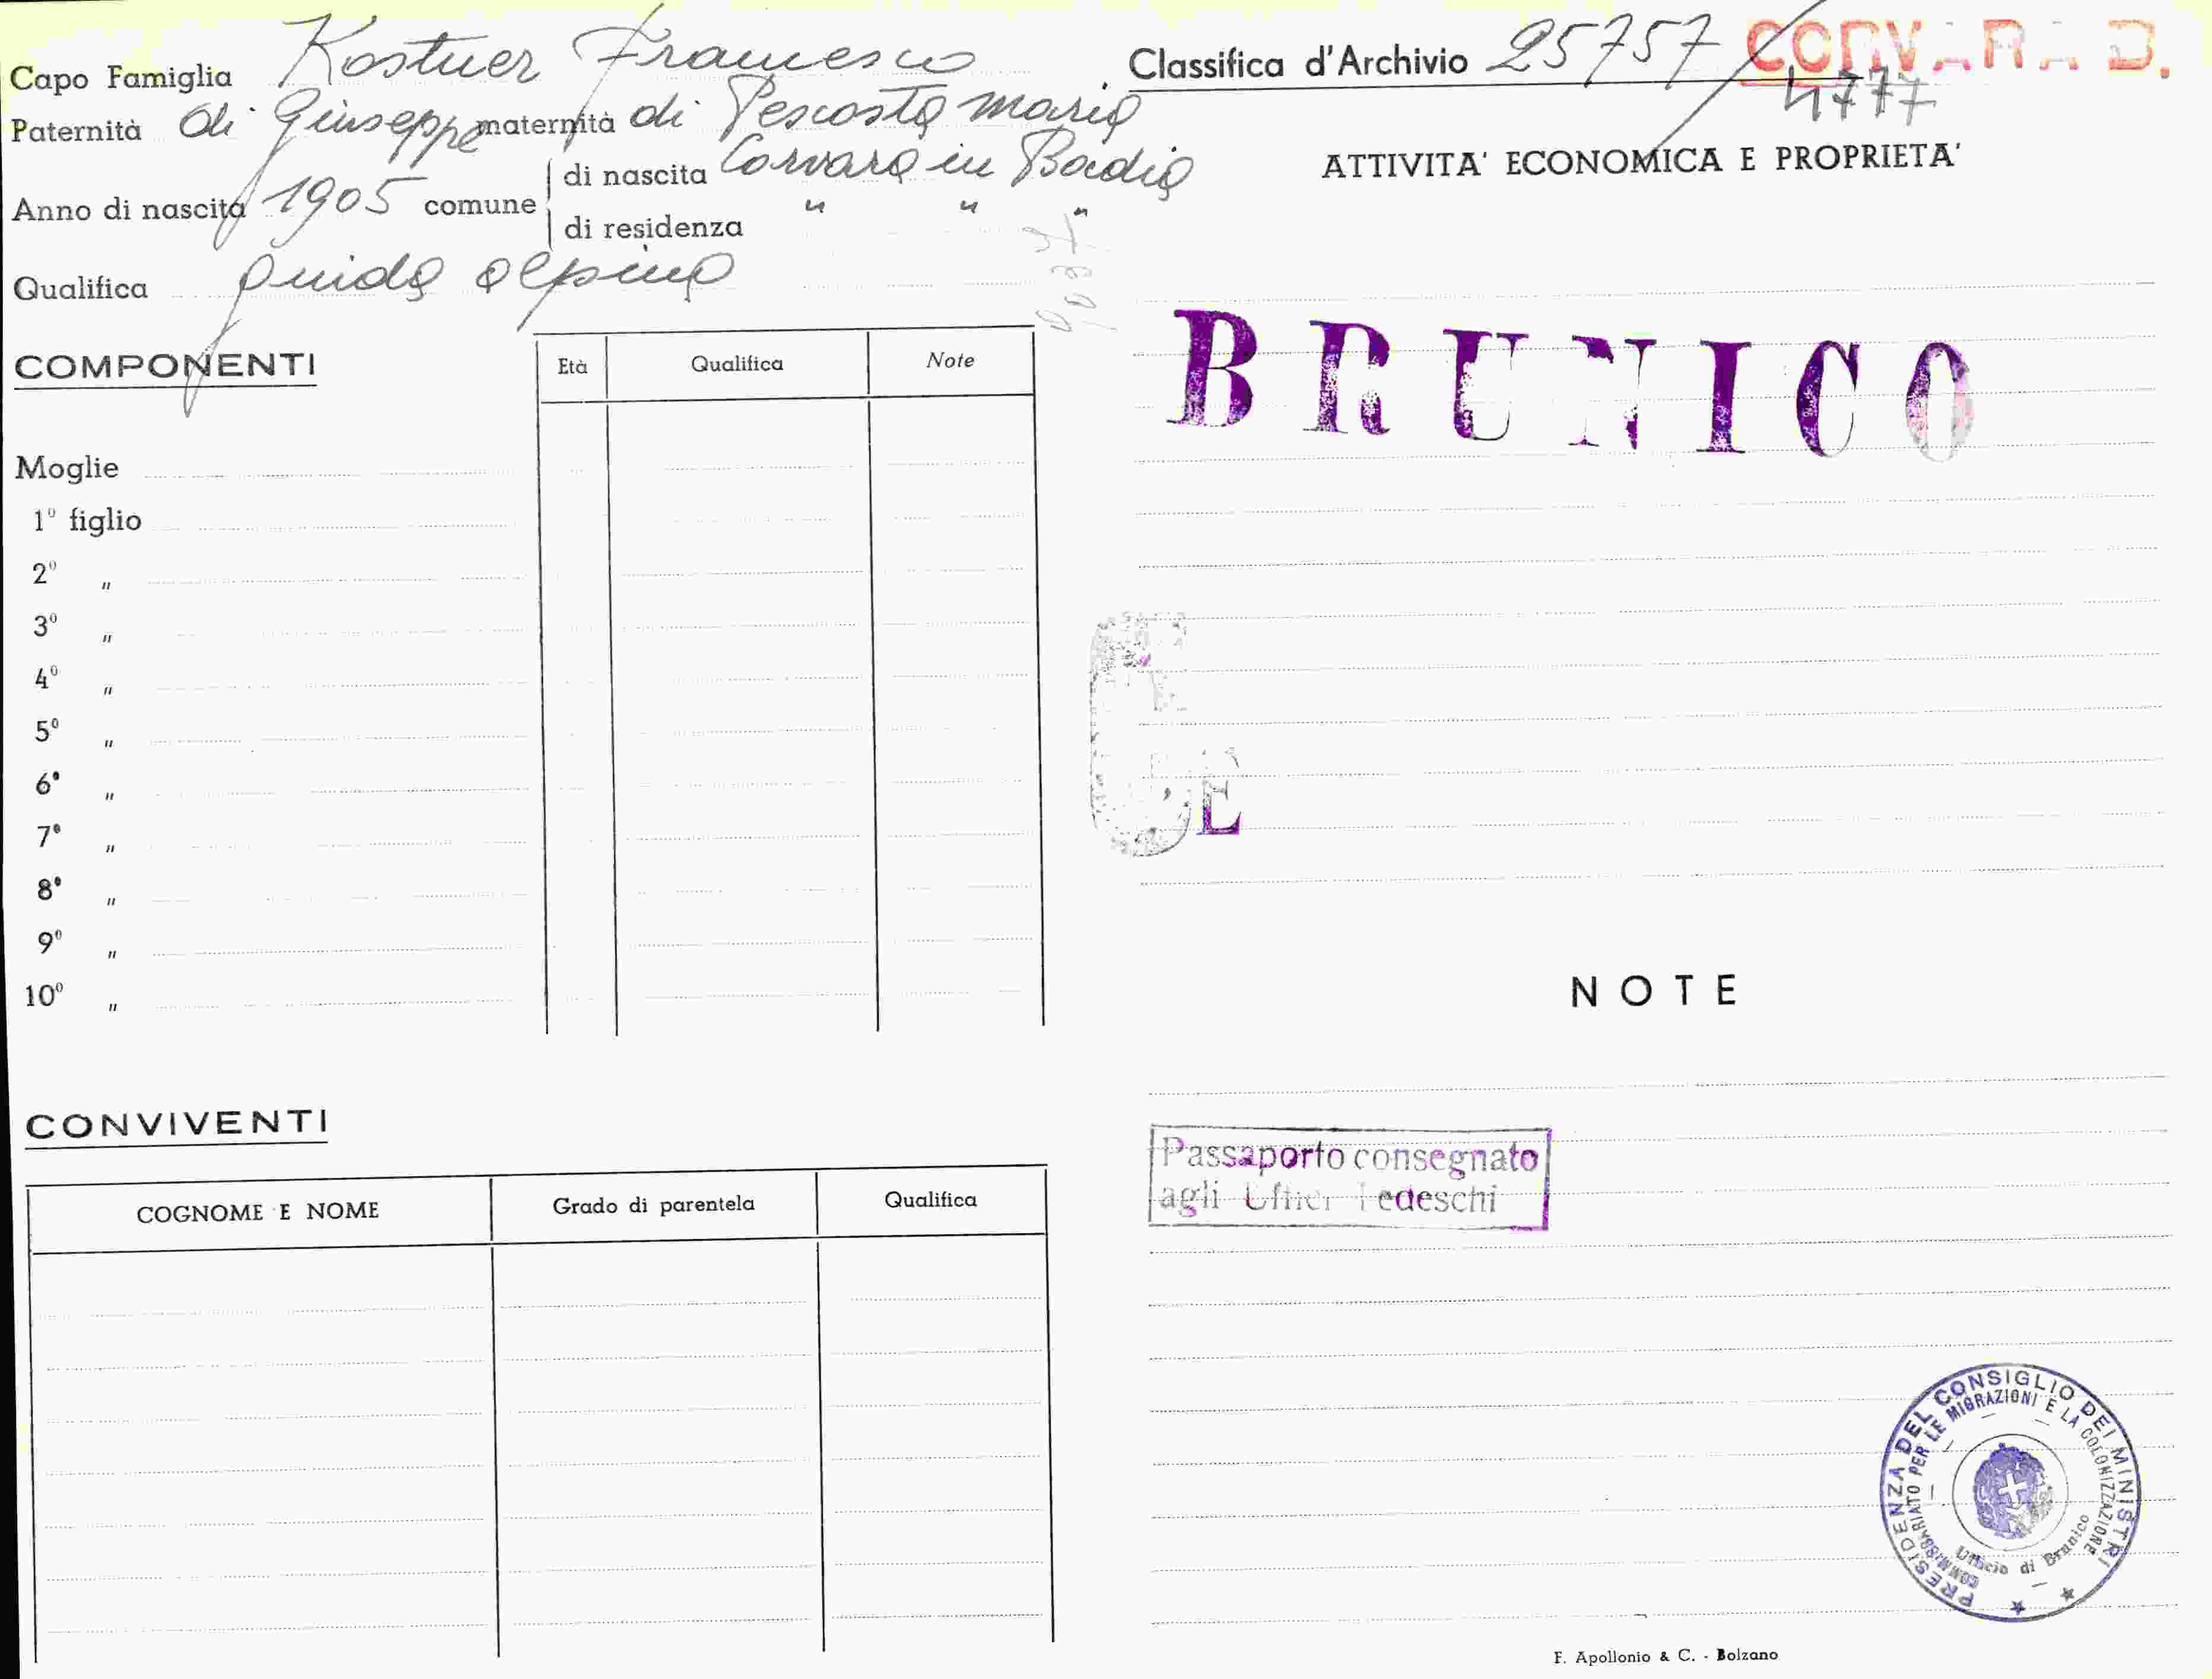 Capo Famiglia Kostner Francesco
Paternità di Giuseppe maternità di Pescosta Maria
Anno di nascita 1905 comune di nascita Corvara in Badia
di residenza " " "
Qualifica guida alpina
COMPONENTI
Età Qualifica Note
Moglie
1º figlio
2º "
3º "
4º "
5º "
6º "
7º "
8º "
9º "
10º "
CONVIVENTI
COGNOME E NOME Grado di parentela Qualifica
Classifica d'Archivio 25757 / CORVARA B.
4777
ATTIVITA' ECONOMICA E PROPRIETA'
BRUNICO
E
NOTE
Passaporto consegnato
agli Uffici Tedeschi
PRESIDENZA DEL CONSIGLIO DEI MINISTRI
COMMISSARIATO PER LE MIGRAZIONI E LA COLONIZZAZIONE
Ufficio di Brunico
F. Apollonio & C. - Bolzano